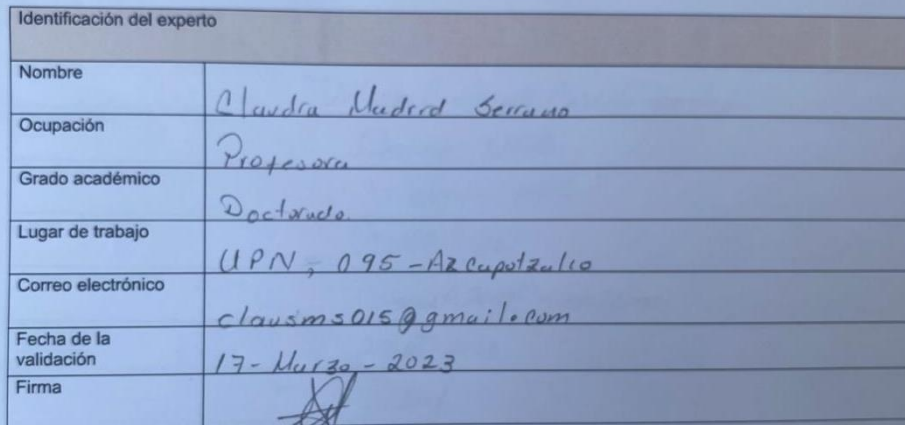 Identificación del experto
Nombre
Claudia Madrid Serrano
Ocupación
Profesora
Grado académico
Doctorado.
Lugar de trabajo
UPN, 095-Azcapotzalco
Correo electrónico
clausms015@gmail.com
Fecha de la
validación
17-Marzo-2023
Firma